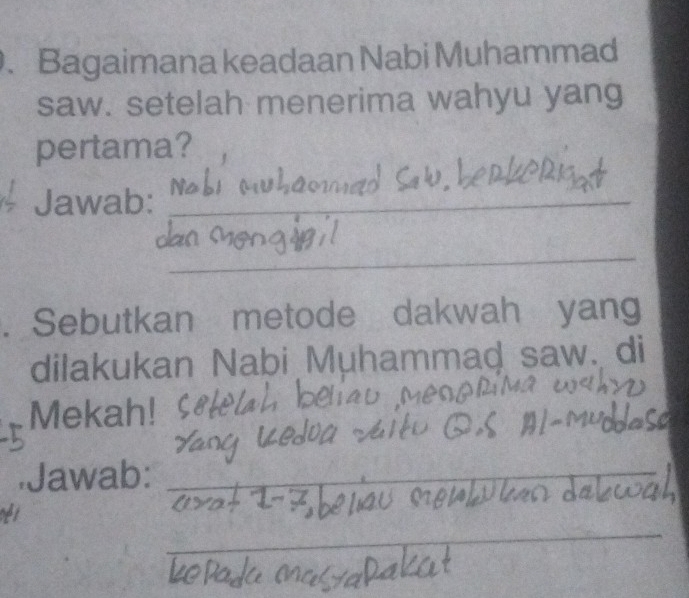 . Bagaimana keadaan Nabi Muhammad
saw. setelah menerima wahyu yang
pertama?
Jawab: Nabi muhammad Saw. berkeringat
dan menggigil
. Sebutkan metode dakwah yang
dilakukan Nabi Muhammad saw. di
Mekah! setelah beliau menerima wahyu
yang kedua yaitu Q.S Al-Muddase
Jawab:
ayat 1-7, beliau melakukan dakwah
kepada masyarakat